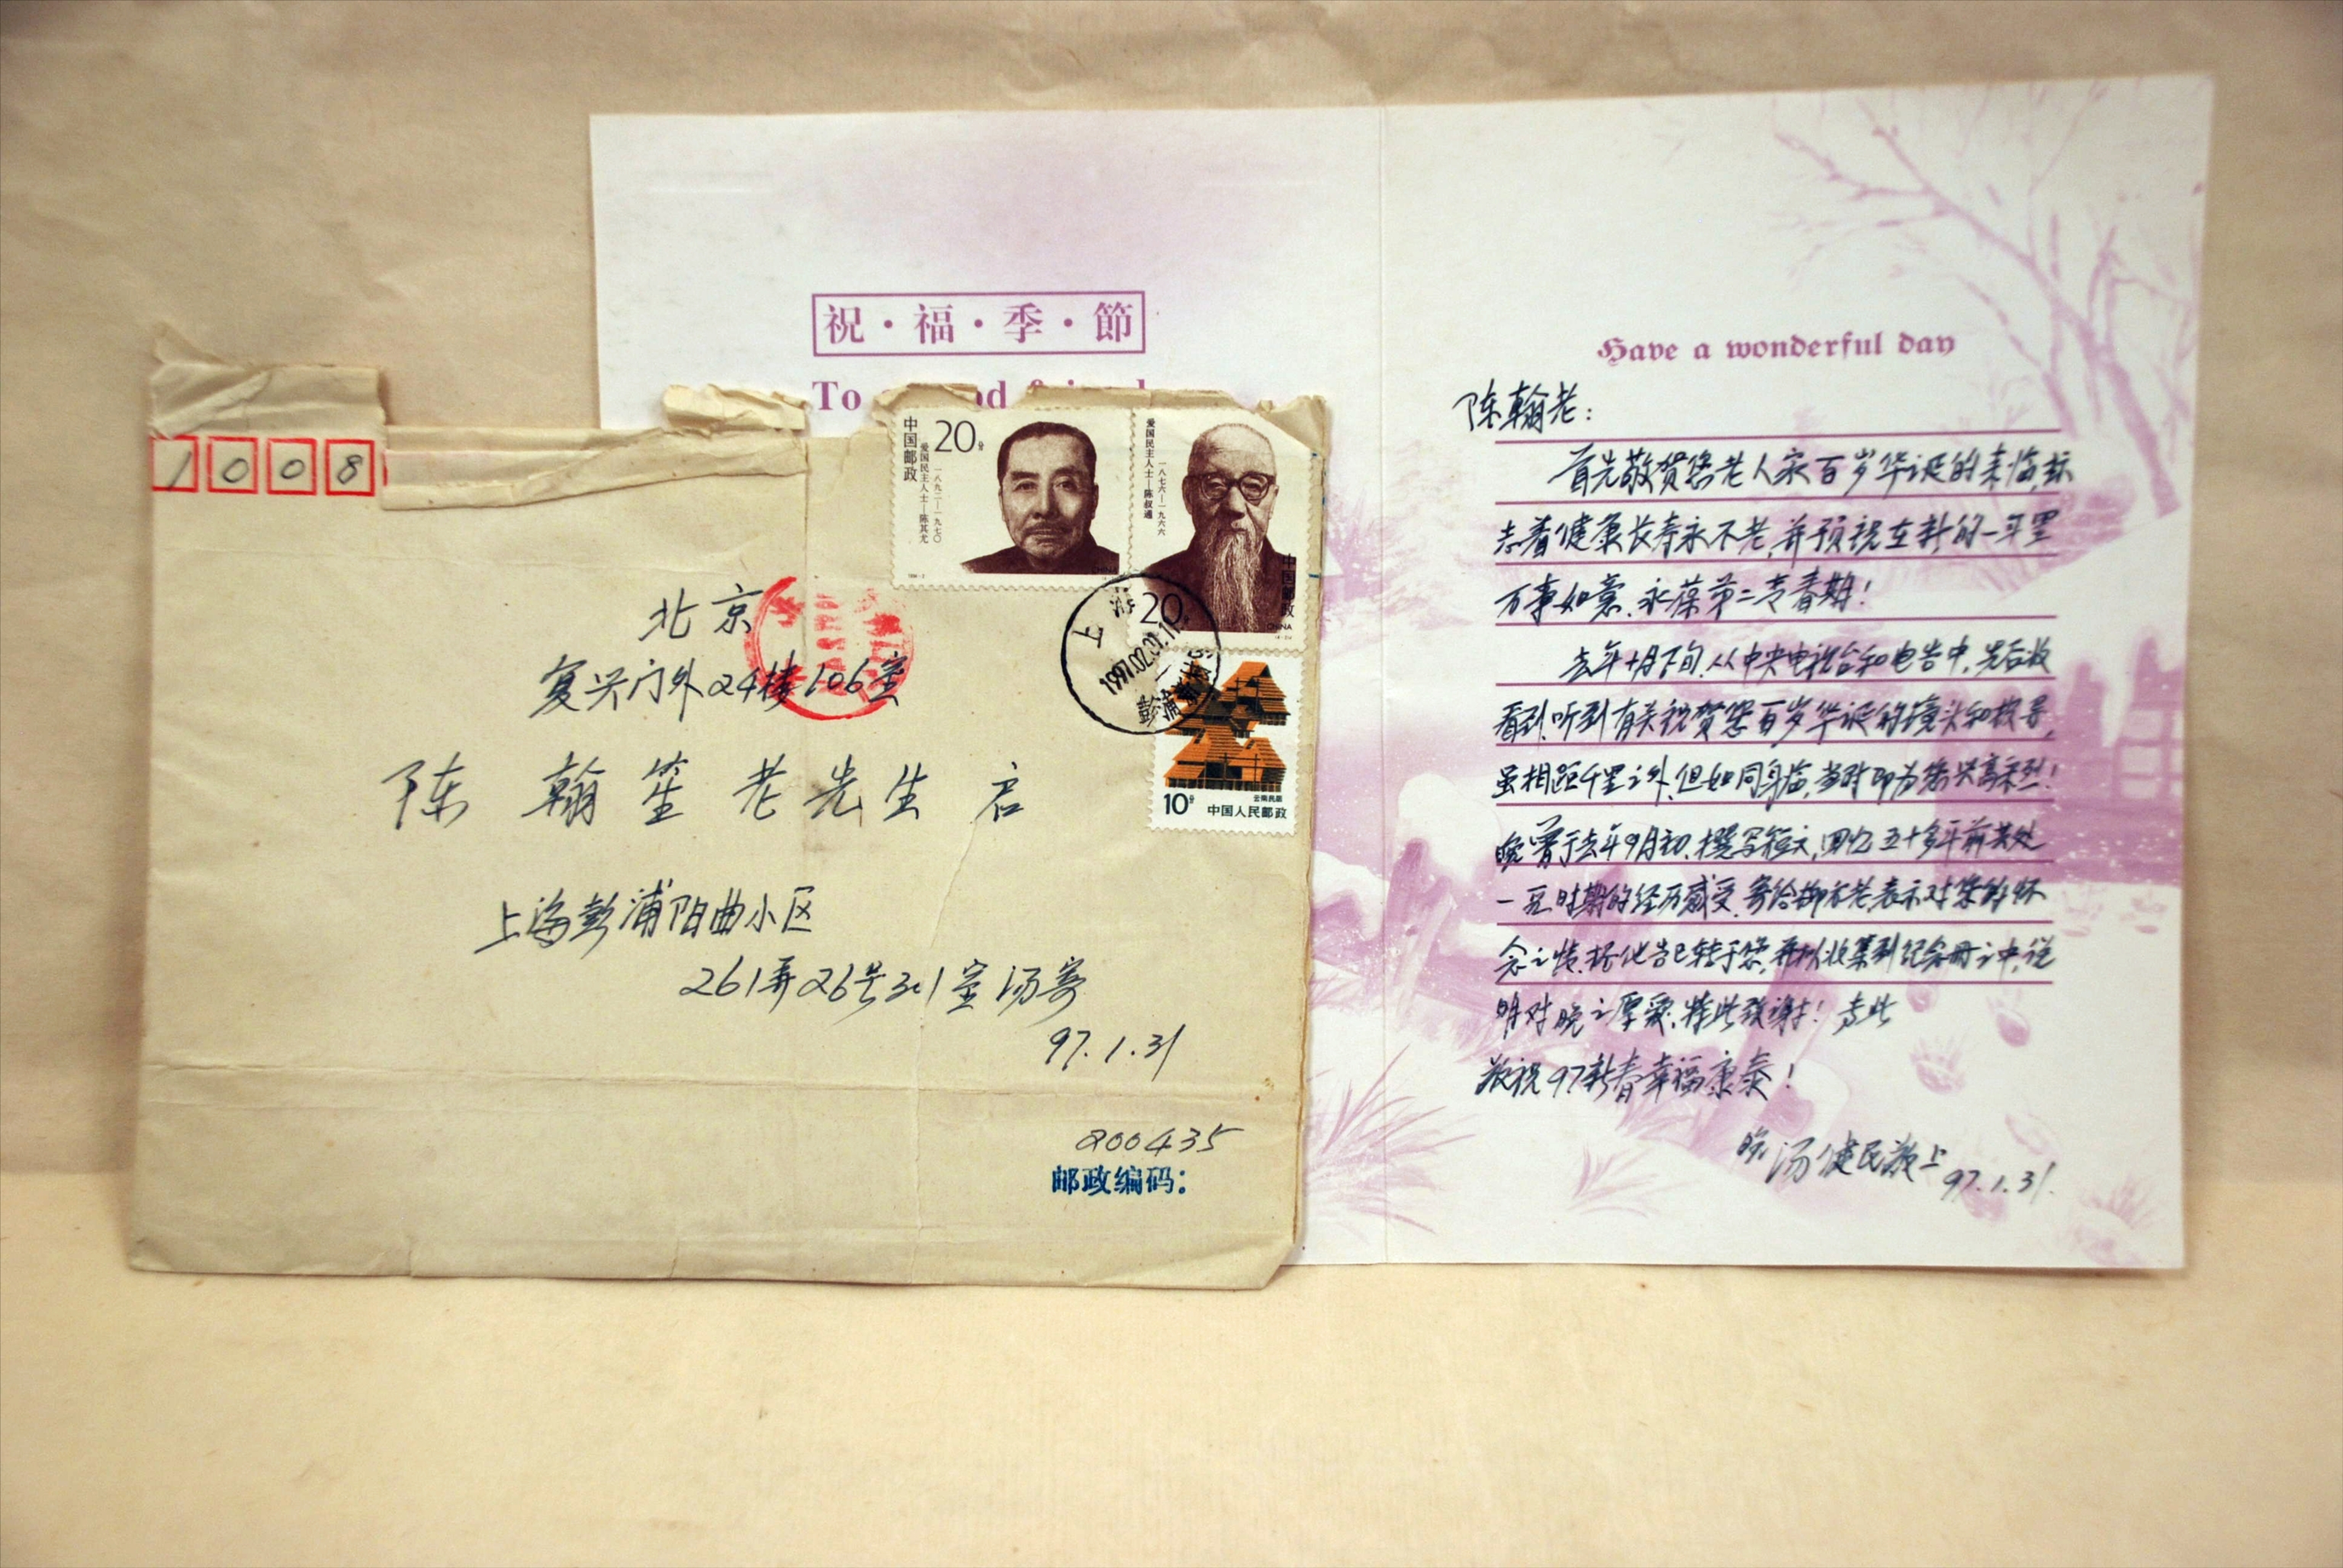 祝·福·季·節
To
Have a wonderful day
1008
中国邮政
20分
爱国民主人士—陈其尤
一八九二—一九七〇
爱国民主人士—陈叔通
一八七六—一九六六
中国邮政
20
CHINA
上海
1997.02.01.1
彭浦新村
10分
云南民居
中国人民邮政
北京
复兴门外24楼106室
陈翰笙老先生启
上海彭浦阳曲小区
261弄26号301室汤寄
97.1.31
200435
邮政编码：
陈翰老：
首先敬贺您老人家百岁华诞的来临,标
志着健康长寿永不老,并预祝在新的一年里
万事如意、永葆第二青春期！
去年十月下旬,从中央电视台和电台中,先后收
看到、听到有关祝贺您百岁华诞的镜头和报导,
虽相距千里之外,但如同身临,当时即为您兴高采烈！
晚曾于去年9月初,撰写短文,回忆五十多年前共处
一段时期的经历感受,寄给柳老表示对您的怀
念之情,据他告已转于您,再拟收集到纪念册之中,说
明对晚之厚爱,特此致谢！专此
敬祝97新春幸福康泰！
晚 汤健民敬上
97.1.31.